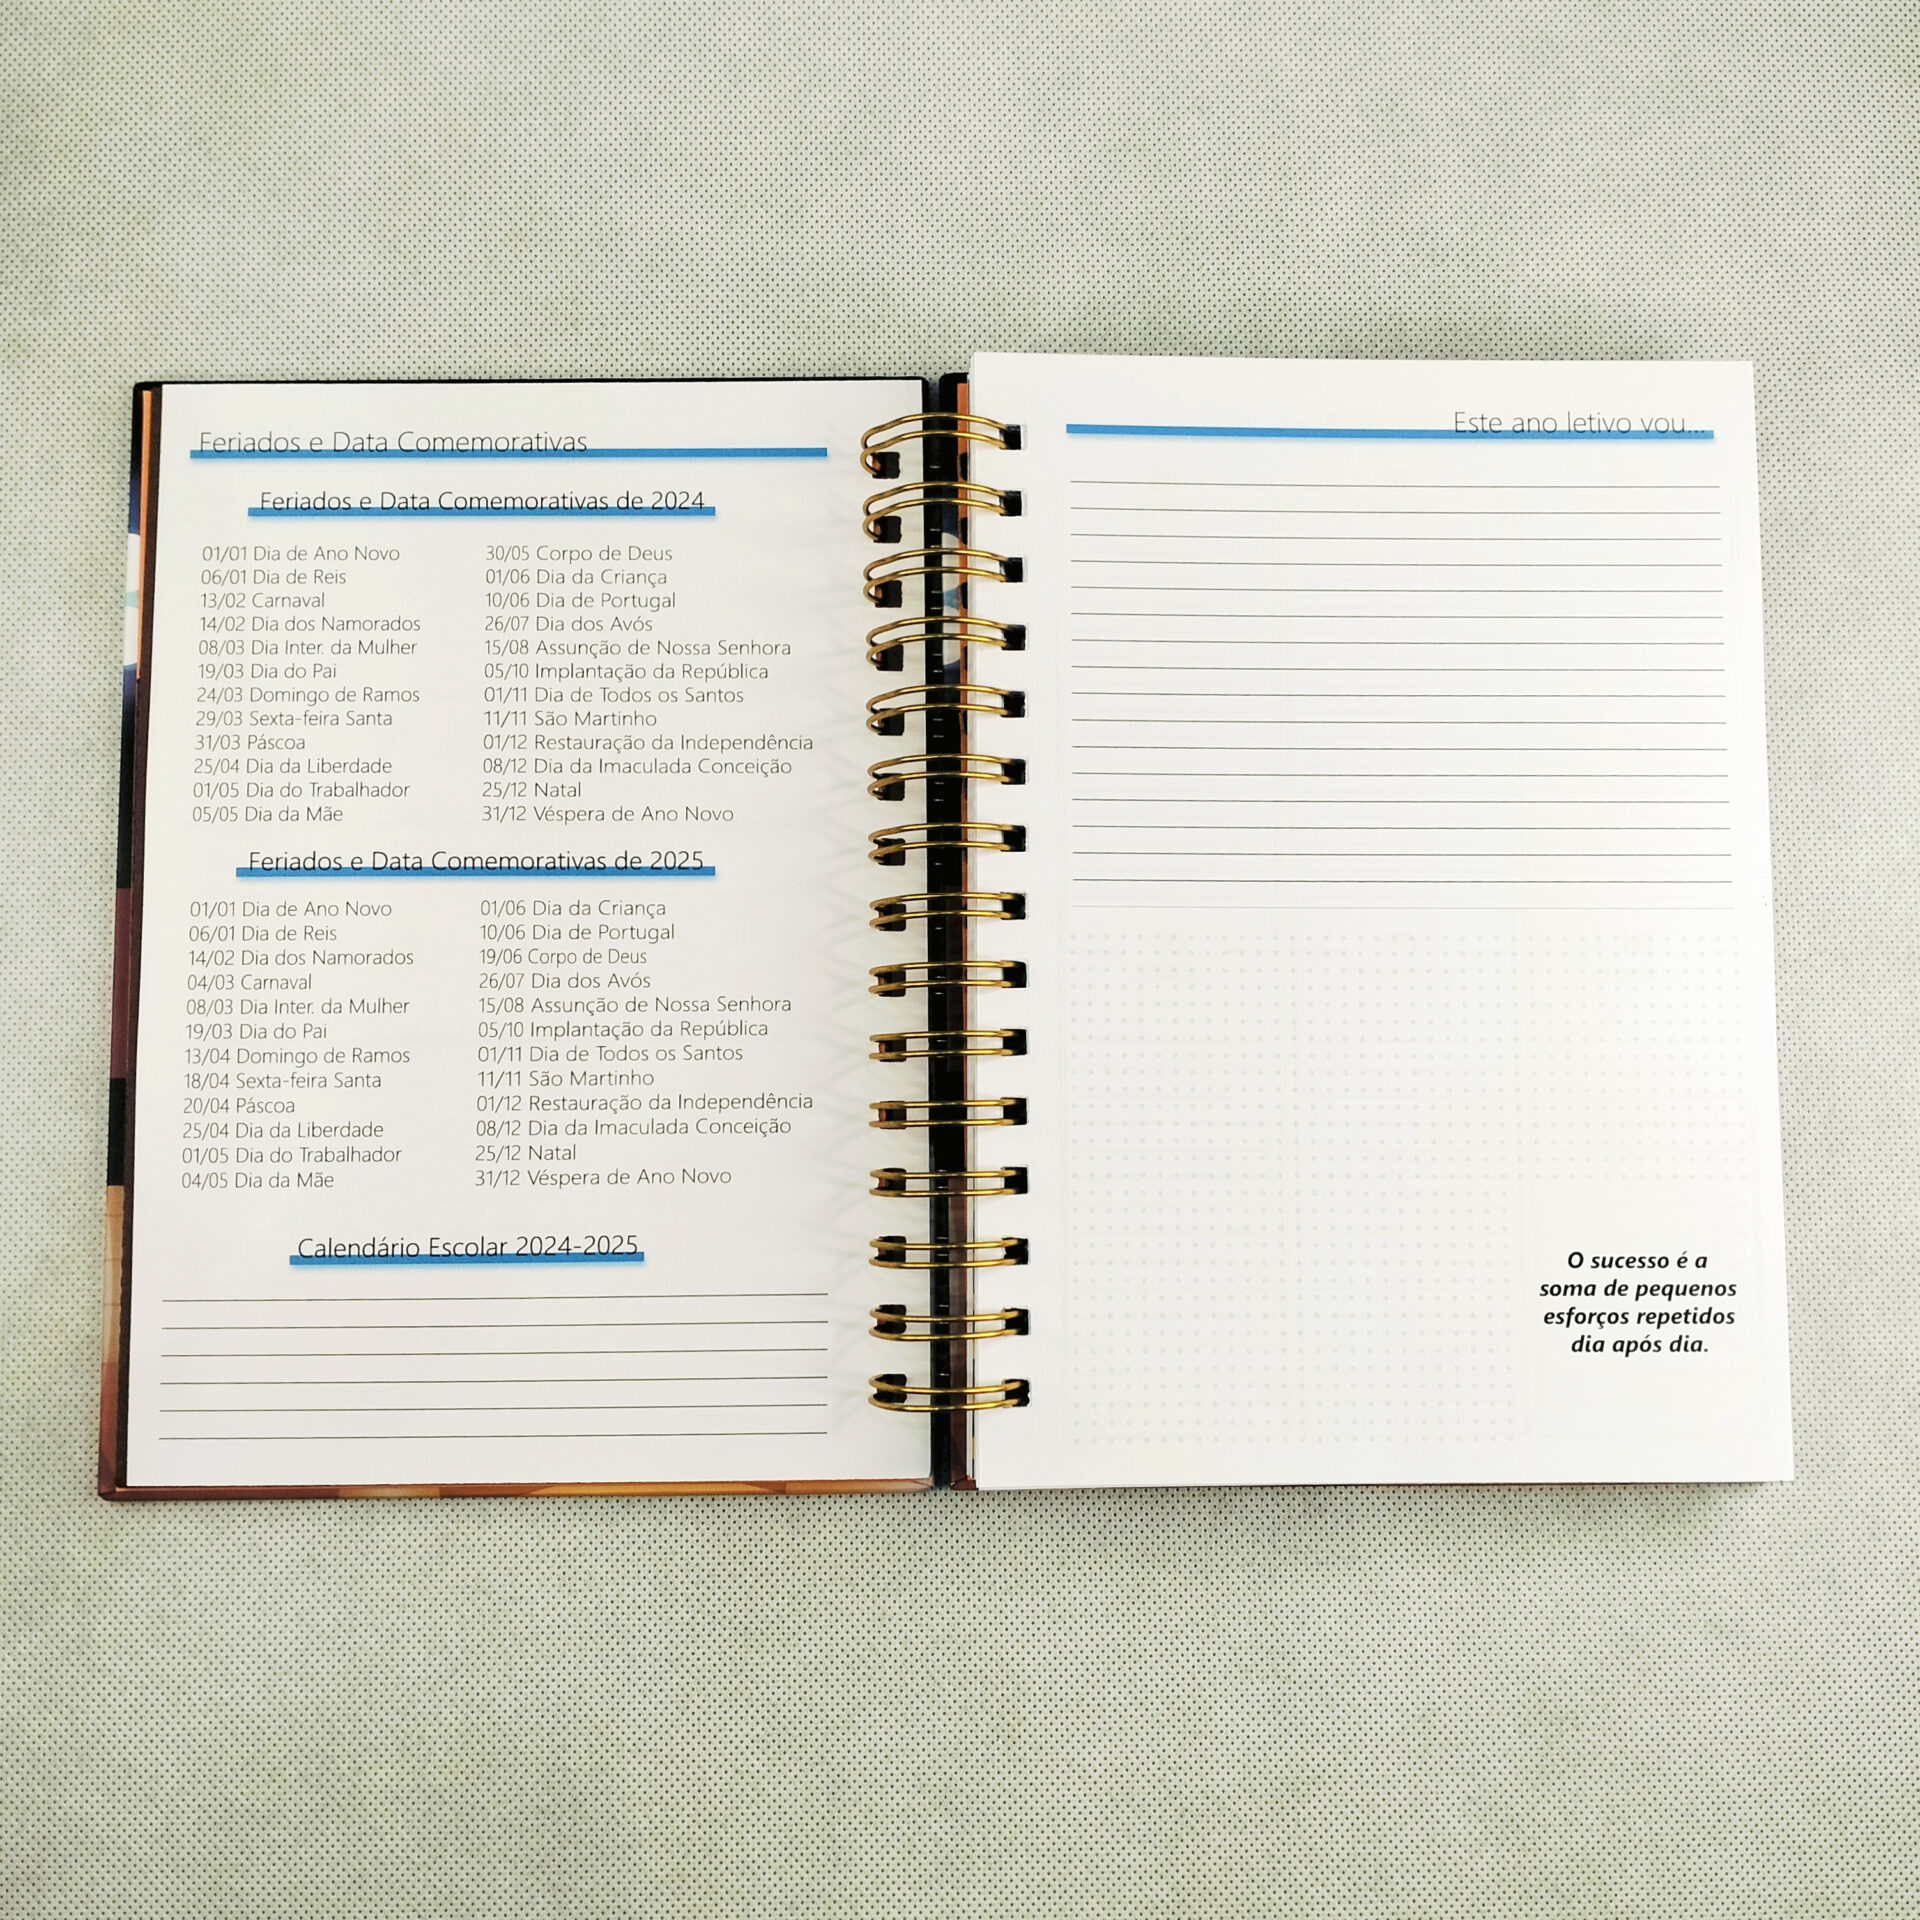 Feriados e Data Comemorativas
Feriados e Data Comemorativas de 2024
01/01 Dia de Ano Novo
06/01 Dia de Reis
13/02 Carnaval
14/02 Dia dos Namorados
08/03 Dia Inter. da Mulher
19/03 Dia do Pai
24/03 Domingo de Ramos
29/03 Sexta-feira Santa
31/03 Páscoa
25/04 Dia da Liberdade
01/05 Dia do Trabalhador
05/05 Dia da Mãe
30/05 Corpo de Deus
01/06 Dia da Criança
10/06 Dia de Portugal
26/07 Dia dos Avós
15/08 Assunção de Nossa Senhora
05/10 Implantação da República
01/11 Dia de Todos os Santos
11/11 São Martinho
01/12 Restauração da Independência
08/12 Dia da Imaculada Conceição
25/12 Natal
31/12 Véspera de Ano Novo
Feriados e Data Comemorativas de 2025
01/01 Dia de Ano Novo
06/01 Dia de Reis
14/02 Dia dos Namorados
04/03 Carnaval
08/03 Dia Inter. da Mulher
19/03 Dia do Pai
13/04 Domingo de Ramos
18/04 Sexta-feira Santa
20/04 Páscoa
25/04 Dia da Liberdade
01/05 Dia do Trabalhador
04/05 Dia da Mãe
01/06 Dia da Criança
10/06 Dia de Portugal
19/06 Corpo de Deus
26/07 Dia dos Avós
15/08 Assunção de Nossa Senhora
05/10 Implantação da República
01/11 Dia de Todos os Santos
11/11 São Martinho
01/12 Restauração da Independência
08/12 Dia da Imaculada Conceição
25/12 Natal
31/12 Véspera de Ano Novo
Calendário Escolar 2024-2025
Este ano letivo vou...
O sucesso é a
soma de pequenos
esforços repetidos
dia após dia.